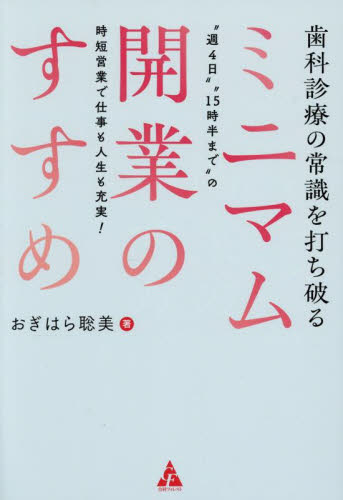 歯科診療の常識を打ち破る
ミニマム
開業の
すすめ
"週4日""15時半まで"の
時短営業で仕事も人生も充実！
おぎはら聡美 著